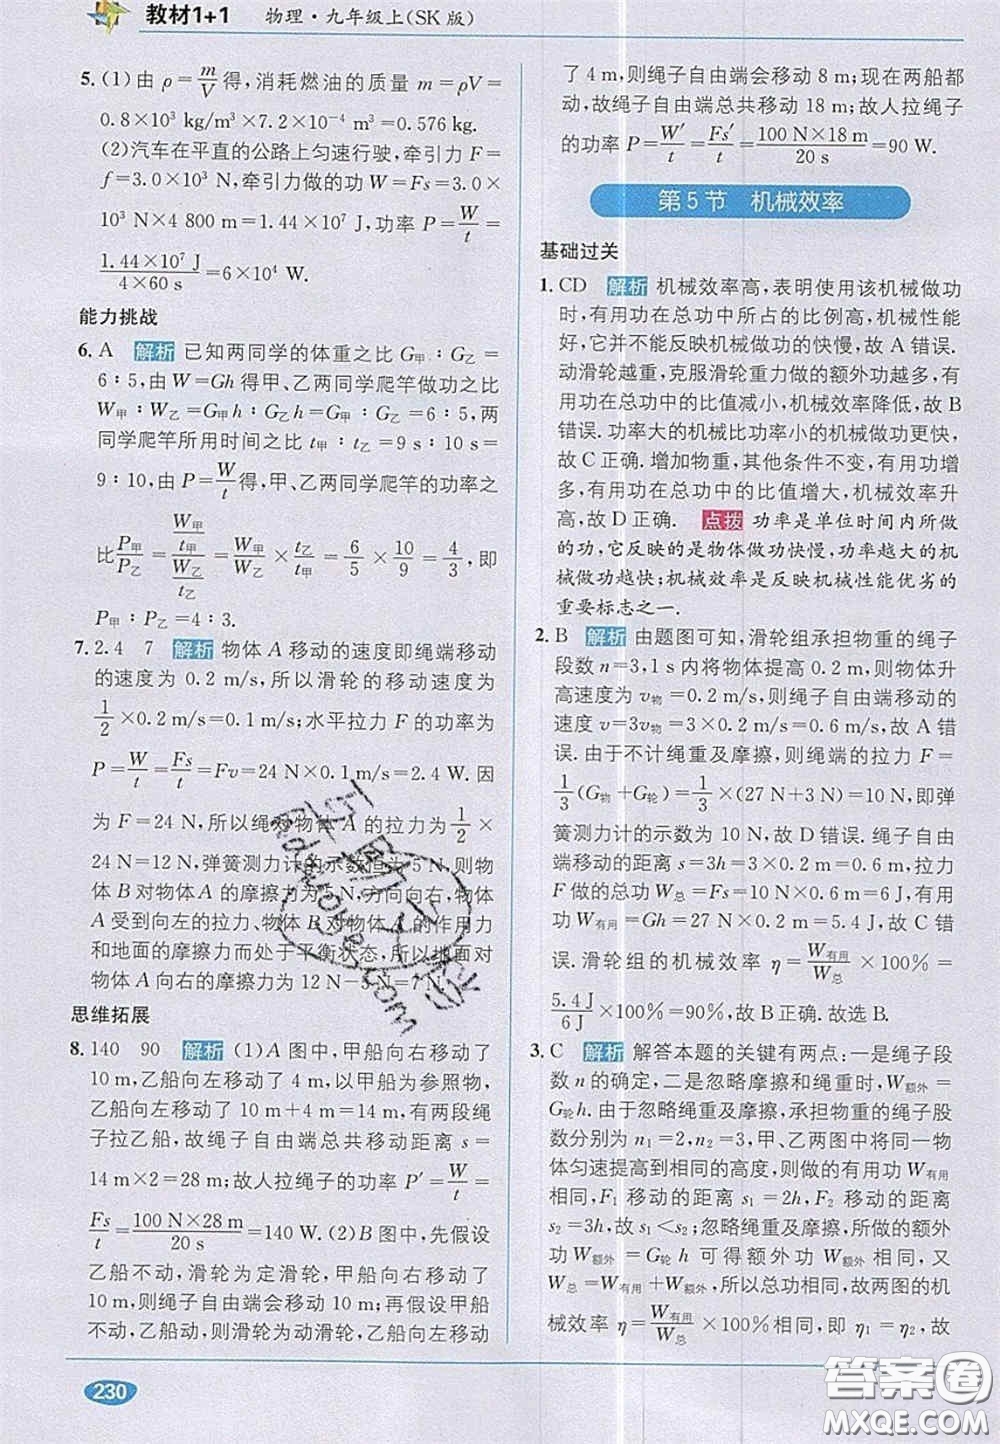 教材1+1 物理·九年级上(SK版)
5. (1)由 ρ=m/V得,消耗燃油的质量 m=ρV=
0.8×10³ kg/m³×7.2×10⁻⁴ m³=0.576 kg.
(2)汽车在平直的公路上匀速行驶,牵引力 F=
f=3.0×10³ N,牵引力做的功 W=Fs=3.0×
10³ N×4 800 m=1.44×10⁷ J,功率 P=W/t=
1.44×10⁷ J/4×60 s=6×10⁴ W.
能力挑战
6. A 解析 已知两同学的体重之比 G甲∶G乙=
6∶5,由 W=Gh 得甲、乙两同学爬竿做功之比
W甲∶W乙=G甲h∶G乙h=G甲∶G乙=6∶5,两
同学爬竿所用时间之比 t甲∶t乙=9 s∶10 s=
9∶10,由 P=W/t得,甲、乙两同学爬竿的功率之
比P甲/P乙=(W甲/t甲)/(W乙/t乙)=W甲/W乙×t乙/t甲=6/5×10/9=4/3,即
P甲∶P乙=4∶3.
7. 2.4 7 解析 物体 A 移动的速度即绳端移动
的速度为 0.2 m/s,所以滑轮的移动速度为
1/2×0.2 m/s=0.1 m/s;水平拉力 F 的功率为
P=W/t=Fs/t=Fv=24 N×0.1 m/s=2.4 W. 因
为 F=24 N,所以绳对物体 A 的拉力为1/2×
24 N=12 N,弹簧测力计的示数恒为 5 N,则物
体 B 对物体A 的摩擦力为5 N,方向向右,物体
A 受到向左的拉力、物体 B 对物体 A 的作用力
和地面的摩擦力而处于平衡状态,所以地面对
物体 A 向右的摩擦力为 12 N-5 N=7 N.
思维拓展
8. 140 90 解析 (1)A 图中,甲船向右移动了
10 m,乙船向左移动了 4 m,以甲船为参照物,
乙船向左移动了 10 m+4 m=14 m,有两段绳
子拉乙船,故绳子自由端总共移动距离 s=
14 m×2=28 m;故人拉绳子的功率 P′=W/t=
Fs/t=100 N×28 m/20 s=140 W. (2)B 图中,先假设
乙船不动,滑轮为定滑轮,甲船向右移动了
10 m,则绳子自由端会移动 10 m;再假设甲船
不动,乙船动,则滑轮为动滑轮,乙船向左移动
了 4 m,则绳子自由端会移动 8 m;现在两船都
动,故绳子自由端总共移动 18 m;故人拉绳子
的功率 P=W′/t=Fs′/t=100 N×18 m/20 s=90 W.
第 5 节 机械效率
基础过关
1. CD 解析 机械效率高,表明使用该机械做功
时,有用功在总功中所占的比例高,机械性能
好,它并不能反映机械做功的快慢,故 A 错误.
动滑轮越重,克服滑轮重力做的额外功越多,有
用功在总功中的比值减小,机械效率降低,故 B
错误. 功率大的机械比功率小的机械做功更快,
故 C 正确. 增加物重,其他条件不变,有用功增
多,有用功在总功中的比值增大,机械效率升
高,故 D 正确. 点拨 功率是单位时间内所做
的功,它反映的是物体做功快慢,功率越大的机
械做功越快;机械效率是反映机械性能优劣的
重要标志之一.
2. B 解析 由题图可知,滑轮组承担物重的绳子
段数 n=3,1 s 内将物体提高 0.2 m,则物体升
高速度为 v物=0.2 m/s,则绳子自由端移动的
速度 v=3v物=3×0.2 m/s=0.6 m/s,故 A 错
误. 由于不计绳重及摩擦,则绳端的拉力 F=
1/3(G物+G轮)=1/3×(27 N+3 N)=10 N,即弹
簧测力计的示数为 10 N,故 D 错误. 绳子自由
端移动的距离 s=3h=3×0.2 m=0.6 m,拉力
F 做的总功 W总=Fs=10 N×0.6 m=6 J,有用
功 W有用=Gh=27 N×0.2 m=5.4 J,故 C 错
误. 滑轮组的机械效率 η=W有用/W总×100%=
5.4 J/6 J×100%=90%,故 B 正确. 故选 B.
3. C 解析 解答本题的关键有两点:一是绳子段
数 n 的确定,二是忽略摩擦和绳重时,W额外=
G轮h. 由于忽略绳重及摩擦,承担物重的绳子股
数分别为 n₁=2,n₂=3,甲、乙两图中将同一物
体匀速提升到相同的高度,则做的有用功 W有用
相同,F₁ 移动的距离 s₁=2h,F₂ 移动的距离
s₂=3h,故 s₁<s₂;忽略绳重及摩擦,所做的额外
功 W额外=G轮 h 可得额外功 W额外相同,又
W总=W有用+W额外,所以总功相同,故两图的机
械效率 η=W有用/W总×100%相同,即 η₁=η₂,故
230
答案圈
MXQE.COM